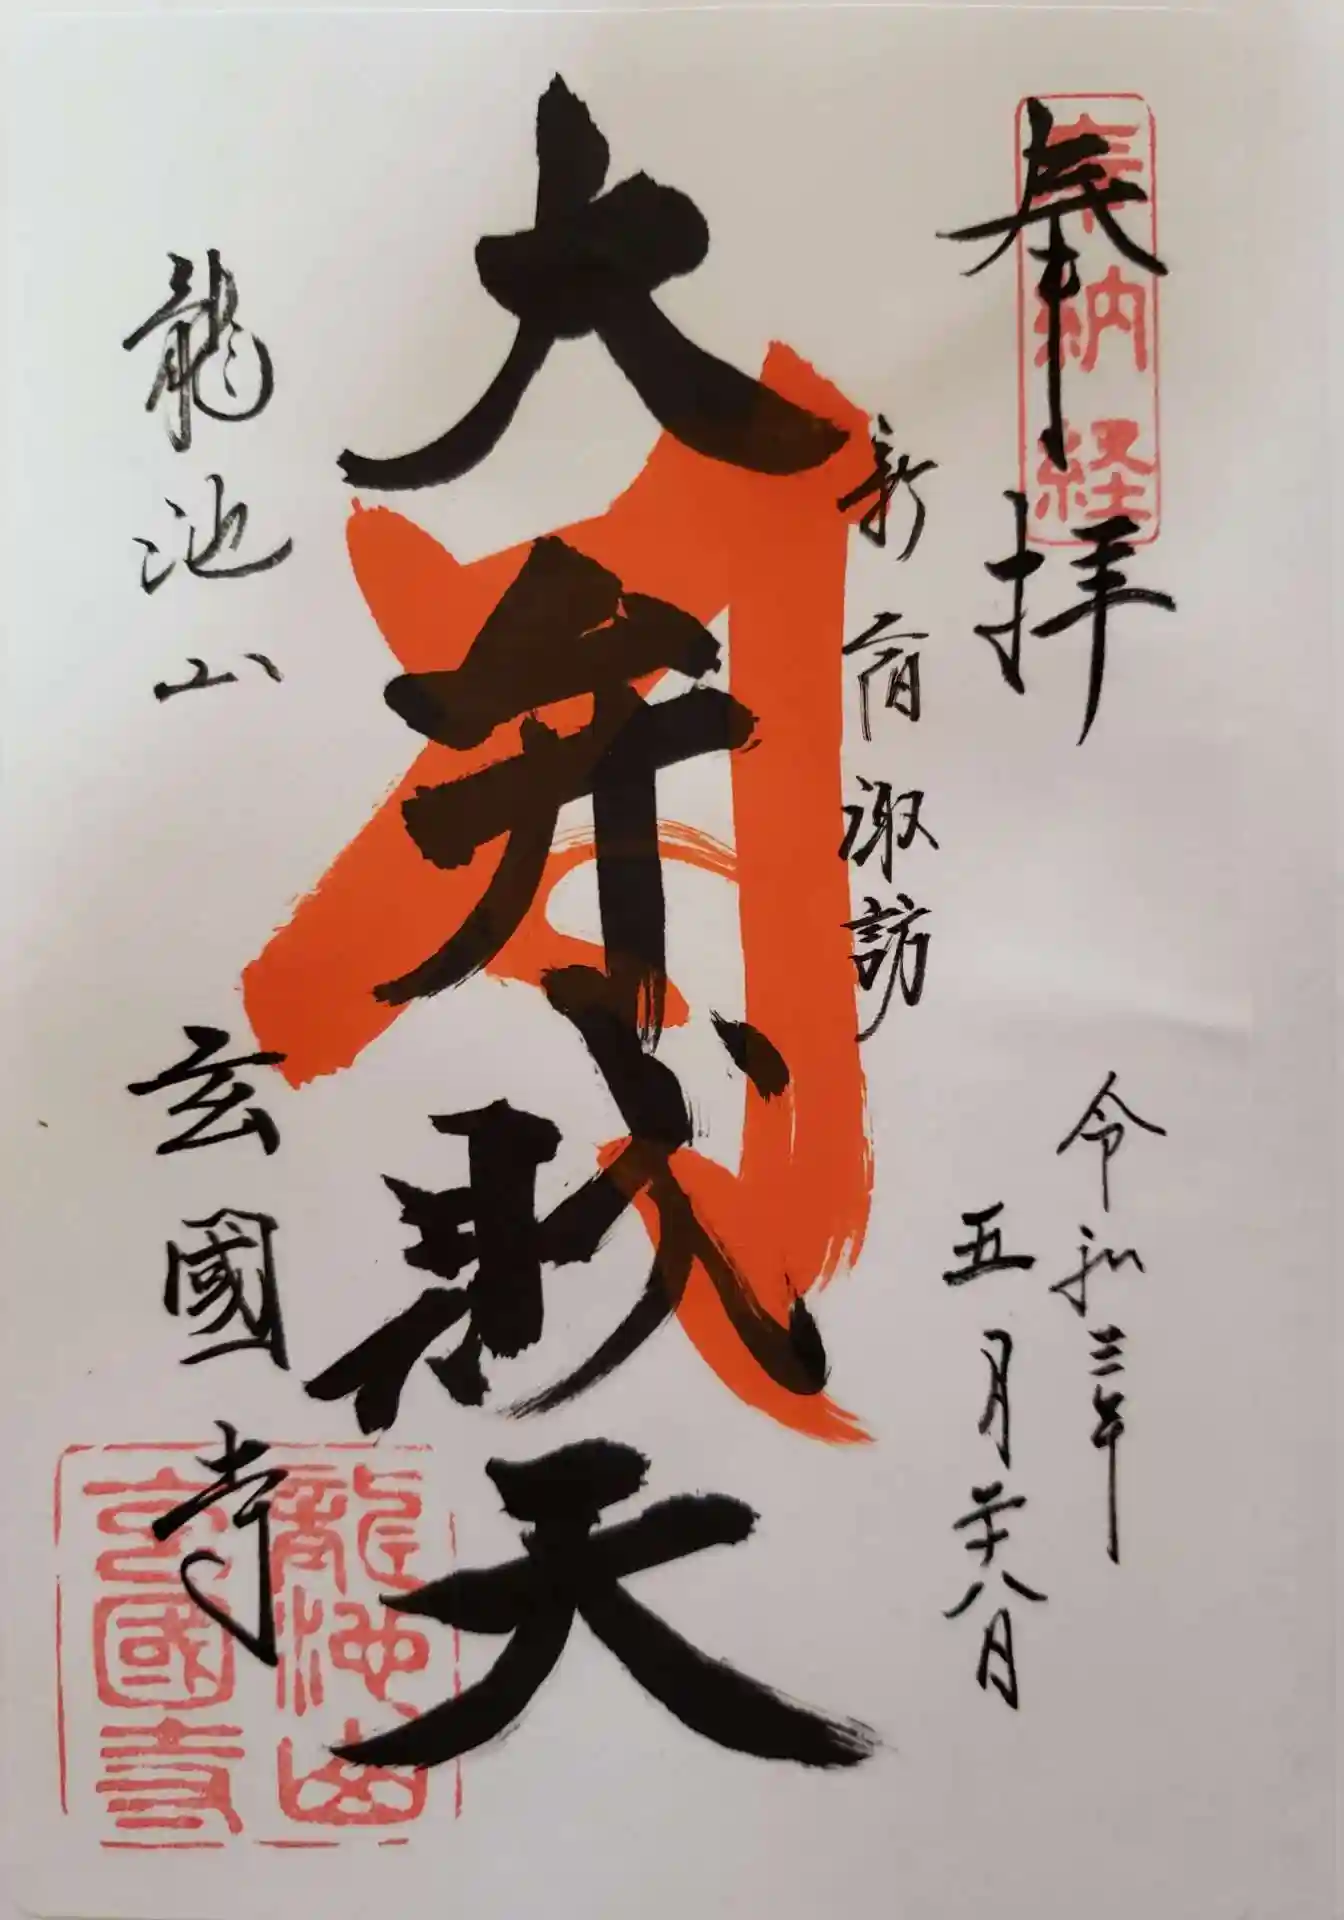 奉拝
奉納経
令和三年
五月廿八日
新宿諏訪
大弁財天
龍池山
玄國寺
龍池山
玄國寺